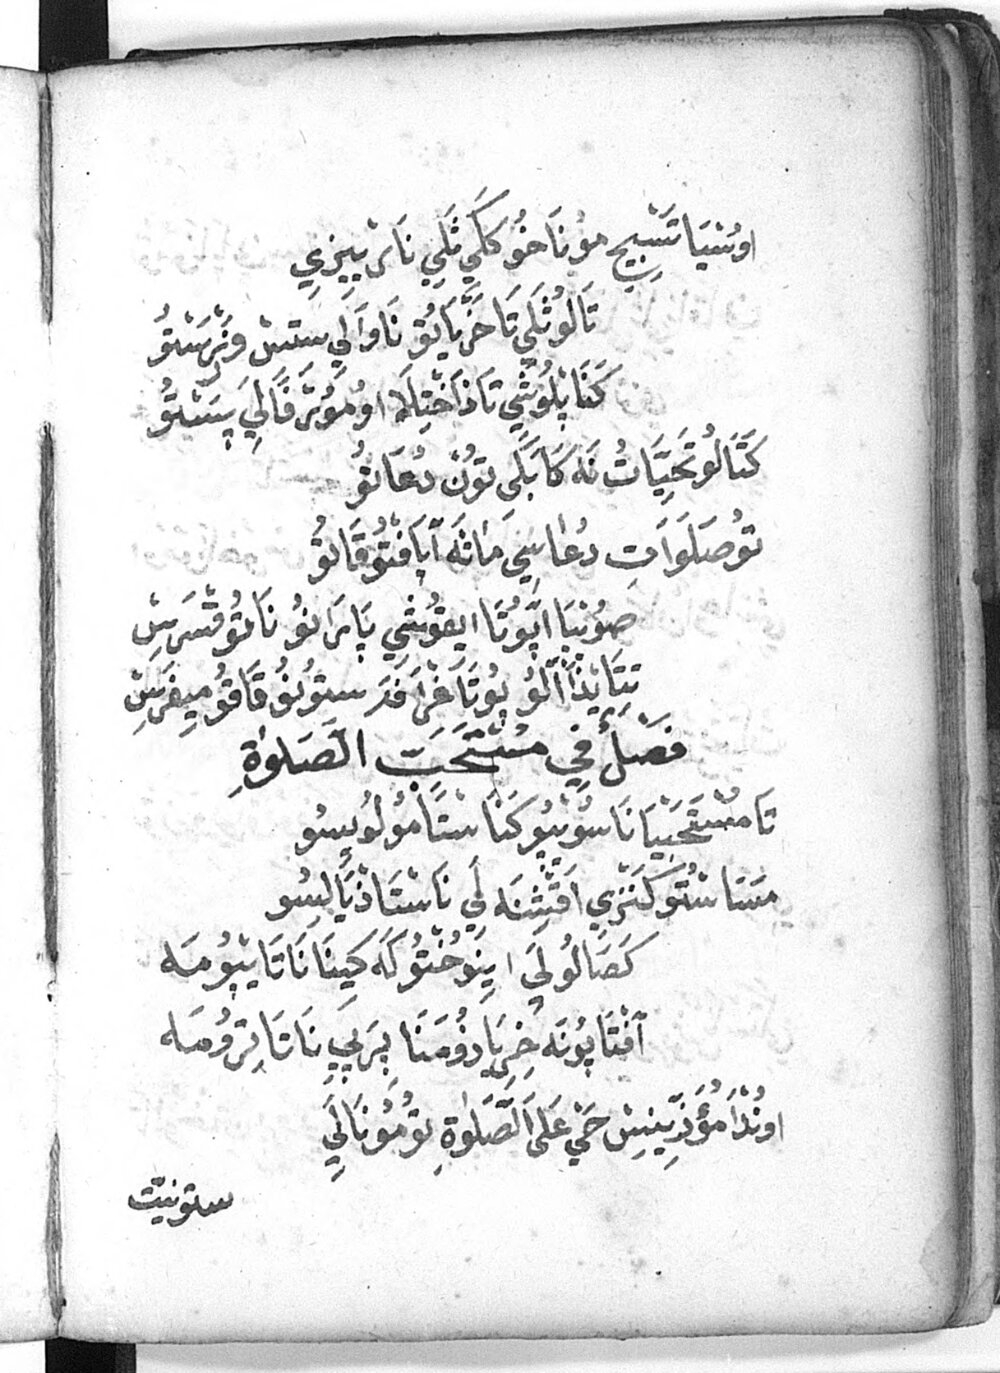 اوُسْنِيَا تَسْبِيحِ مؤُنَا خوُ كَكَىِ ثَلَىِ نَارْ بِيزِىِ
تَالوُ ثَلَىِ تَا خَرْيَايُقِ نَاوَالِى سَتِسْ وِزْرَسْتوُ
كَنَا پْلوُنْثِىِ تَاذَاخْتِلَا اوُمؤُتْرَ فَالِىَ پِسَسْتوُ
كَتَالوُ تَحِيَّاتُ نَه كَابَكَىِ توُنْ دُعَاتوُ
توُ صَلَوَاتِ دُعَاسِىِ مَاثَه آپَافْتوُ قَاتوُ
صوُنْبَا اپّوُتَا ايقوُثِىِ پَاىرَانوُ نَاتوُ قْسَرِسْ
تِتَا يْذَآلوُ پوُتَاغْرَافَدَ ستوُنوُ قَاقوُ مِيغَرِسْ
فَصْلٌ فِي مُسْتَحَبِّ الصَّلوٰةِ
تَا مُسْتَحَبِّيَا نَاسوُ پوُ كَنَا سْتَا مؤُلوُيِسوُ
مَسَا سْتوُ كَنْزِىِ اقَثِنَه لَىِ نَاسْتَاذْيَالِسوُ
كَصَالوُلَىِ ايِنوُخْتوُكَه كَينَا نَاتَا يپوُمَه
آفْتَا پوُنَه خِرْيَاذوُمَنَا پِرَپىِ نَاتَا تِرؤُمَه
اوُنْدَا مُؤَذِّنِينِسْ حَيَّ عَلَى الصَّلوٰةِ توُ مؤُنَالَىِ
ستونيّت